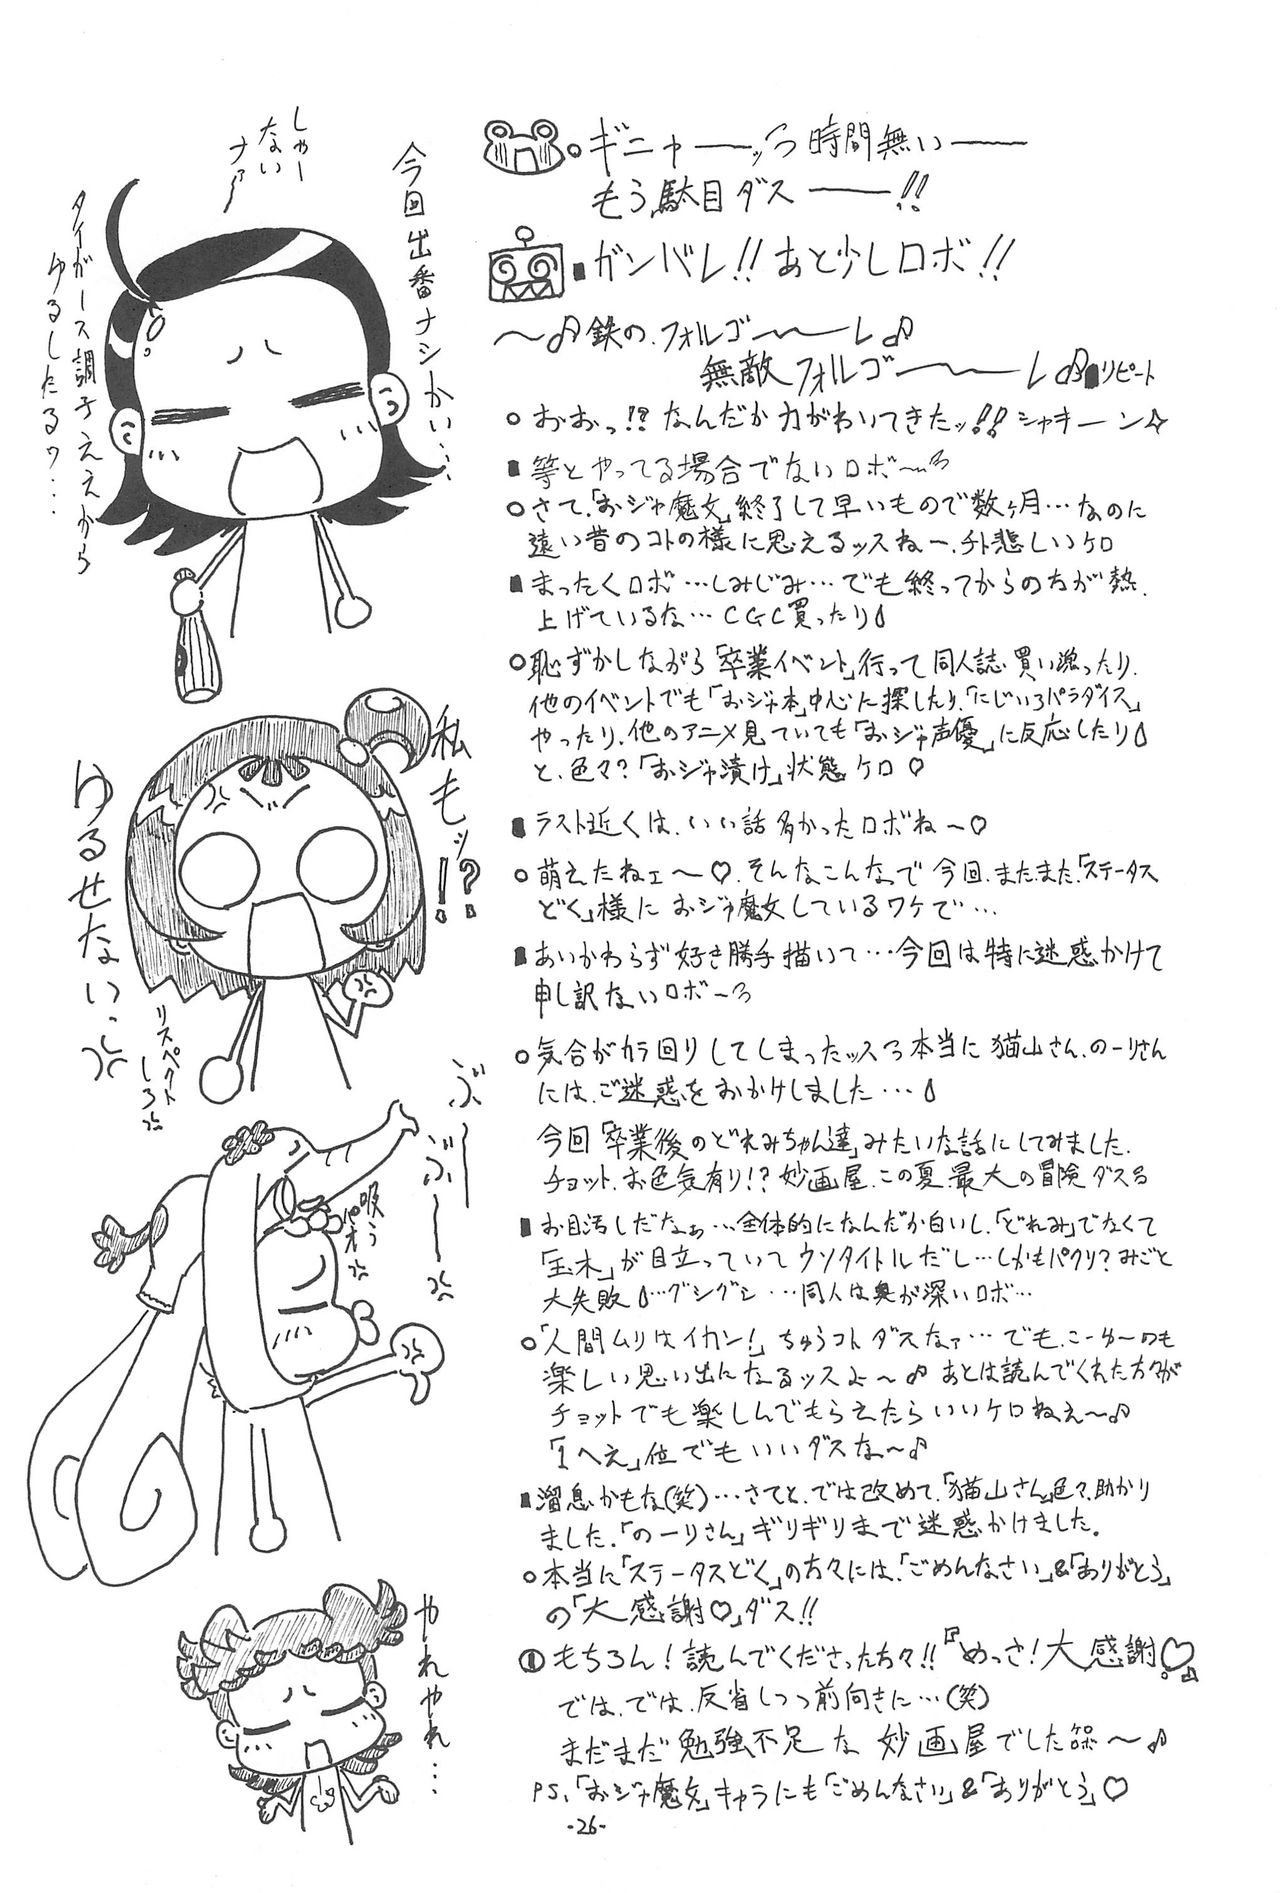 ギニャーーッろ時間無いーー
もう駄目ダスーー!!
ガンバレ!!あと少しロボ!!
～♪鉄の、フォルゴ～～レ♪
無敵フォルゴ～～レ♪リピート
おおっ!?なんだか力がわいてきたッ!!シャキーン☆
等とやってる場合でないロボ～ろ
さて、「おジャ魔女」終了して早いもので数ヶ月…なのに
遠い昔のコトの様に思えるッスねー、チト悲しいケロ
まったくロボ…しみじみ…でも終ってからの方が熱、
上げているな…CGC買ったり
恥ずかしながら「卒業イベント」行って同人誌買い漁ったり、
他のイベントでも「おジャ本」中心に探したり、「にじいろパラダイス」
やったり、他のアニメ見ていても「おジャ声優」に反応したり
と、色々?「おジャ漬け」状態ケロ♡
ラスト近くは、いい話多かったロボね～♡
萌えたねェ～♡、そんなこんなで今回、またまた、「ステータス
どく」様におジャ魔女しているワケで…
あいかわらず好き勝手描いて…今回は特に迷惑かけて
申し訳ないロボ～ろ
気合がカラ回りしてしまったッスろ本当に猫山さん、のーりさん
には、ご迷惑をおかけしました…
今回「卒業後のどれみちゃん達」みたいな話にしてみました、
チョット、お色気有り!?妙画屋、この夏、最大の冒険ダスろ
お目汚しだなぁ…全体的になんだか白いし、「どれみ」でなくて
「玉木」が目立っていてウソタイトルだし…しかもパクリ?みごと
大失敗…グシグシ…同人は奥が深いロボ…
「人間ムリはイカン!」ちゅうコトダスなァ…でも、こーゆーのも
楽しい思い出になるッスよ～♪あとは読んでくれた方々が
チョットでも楽しんでもらえたらいいケロねぇ～♪
「1へえ」位でもいいダスな～♪
溜息かもな(笑)…さてと、では改めて、「猫山さん」色々、助かり
ました、「のーりさん」ギリギリまで迷惑かけました。
本当に「ステータスどく」の方々には、「ごめんなさい」&「ありがとう」
の「大感謝♡」ダス!!
もちろん!読んでくださった方々!!『めっさ!大感謝♡。』
では、では、反省しつつ前向きに…(笑)
まだまだ勉強不足な妙画屋でしたケロロボ～♪
PS、「おジャ魔女」キャラにも「ごめんなさい」&「ありがとう」♡
-26-
今回出番ナシかい…
しゃー
ない
ナァ～
タイガース調子ええから
ゆるしたるワ…
私もッ!?
ゆるせないっ
リスペクト
しろ
ぶーー
ぶーー
吸う
パオ
やれやれ…